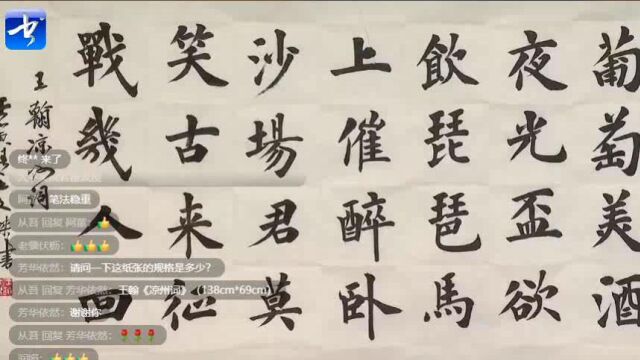 葡萄美酒
夜光盃欲
飲琵琶馬
上催醉卧
沙場君莫
笑古来征
戰幾人回
王翰凉州词
终** 来了
笔法稳重
从吾 回复 阿
老骥伏枥：👍👍👍
芳华依然：请问一下这纸张的规格是多少？
从吾 回复 芳华依然：王翰《凉州词》（138cm*69cm）
芳华依然：谢谢你
从吾 回复 芳华依然：🌹🌹🌹